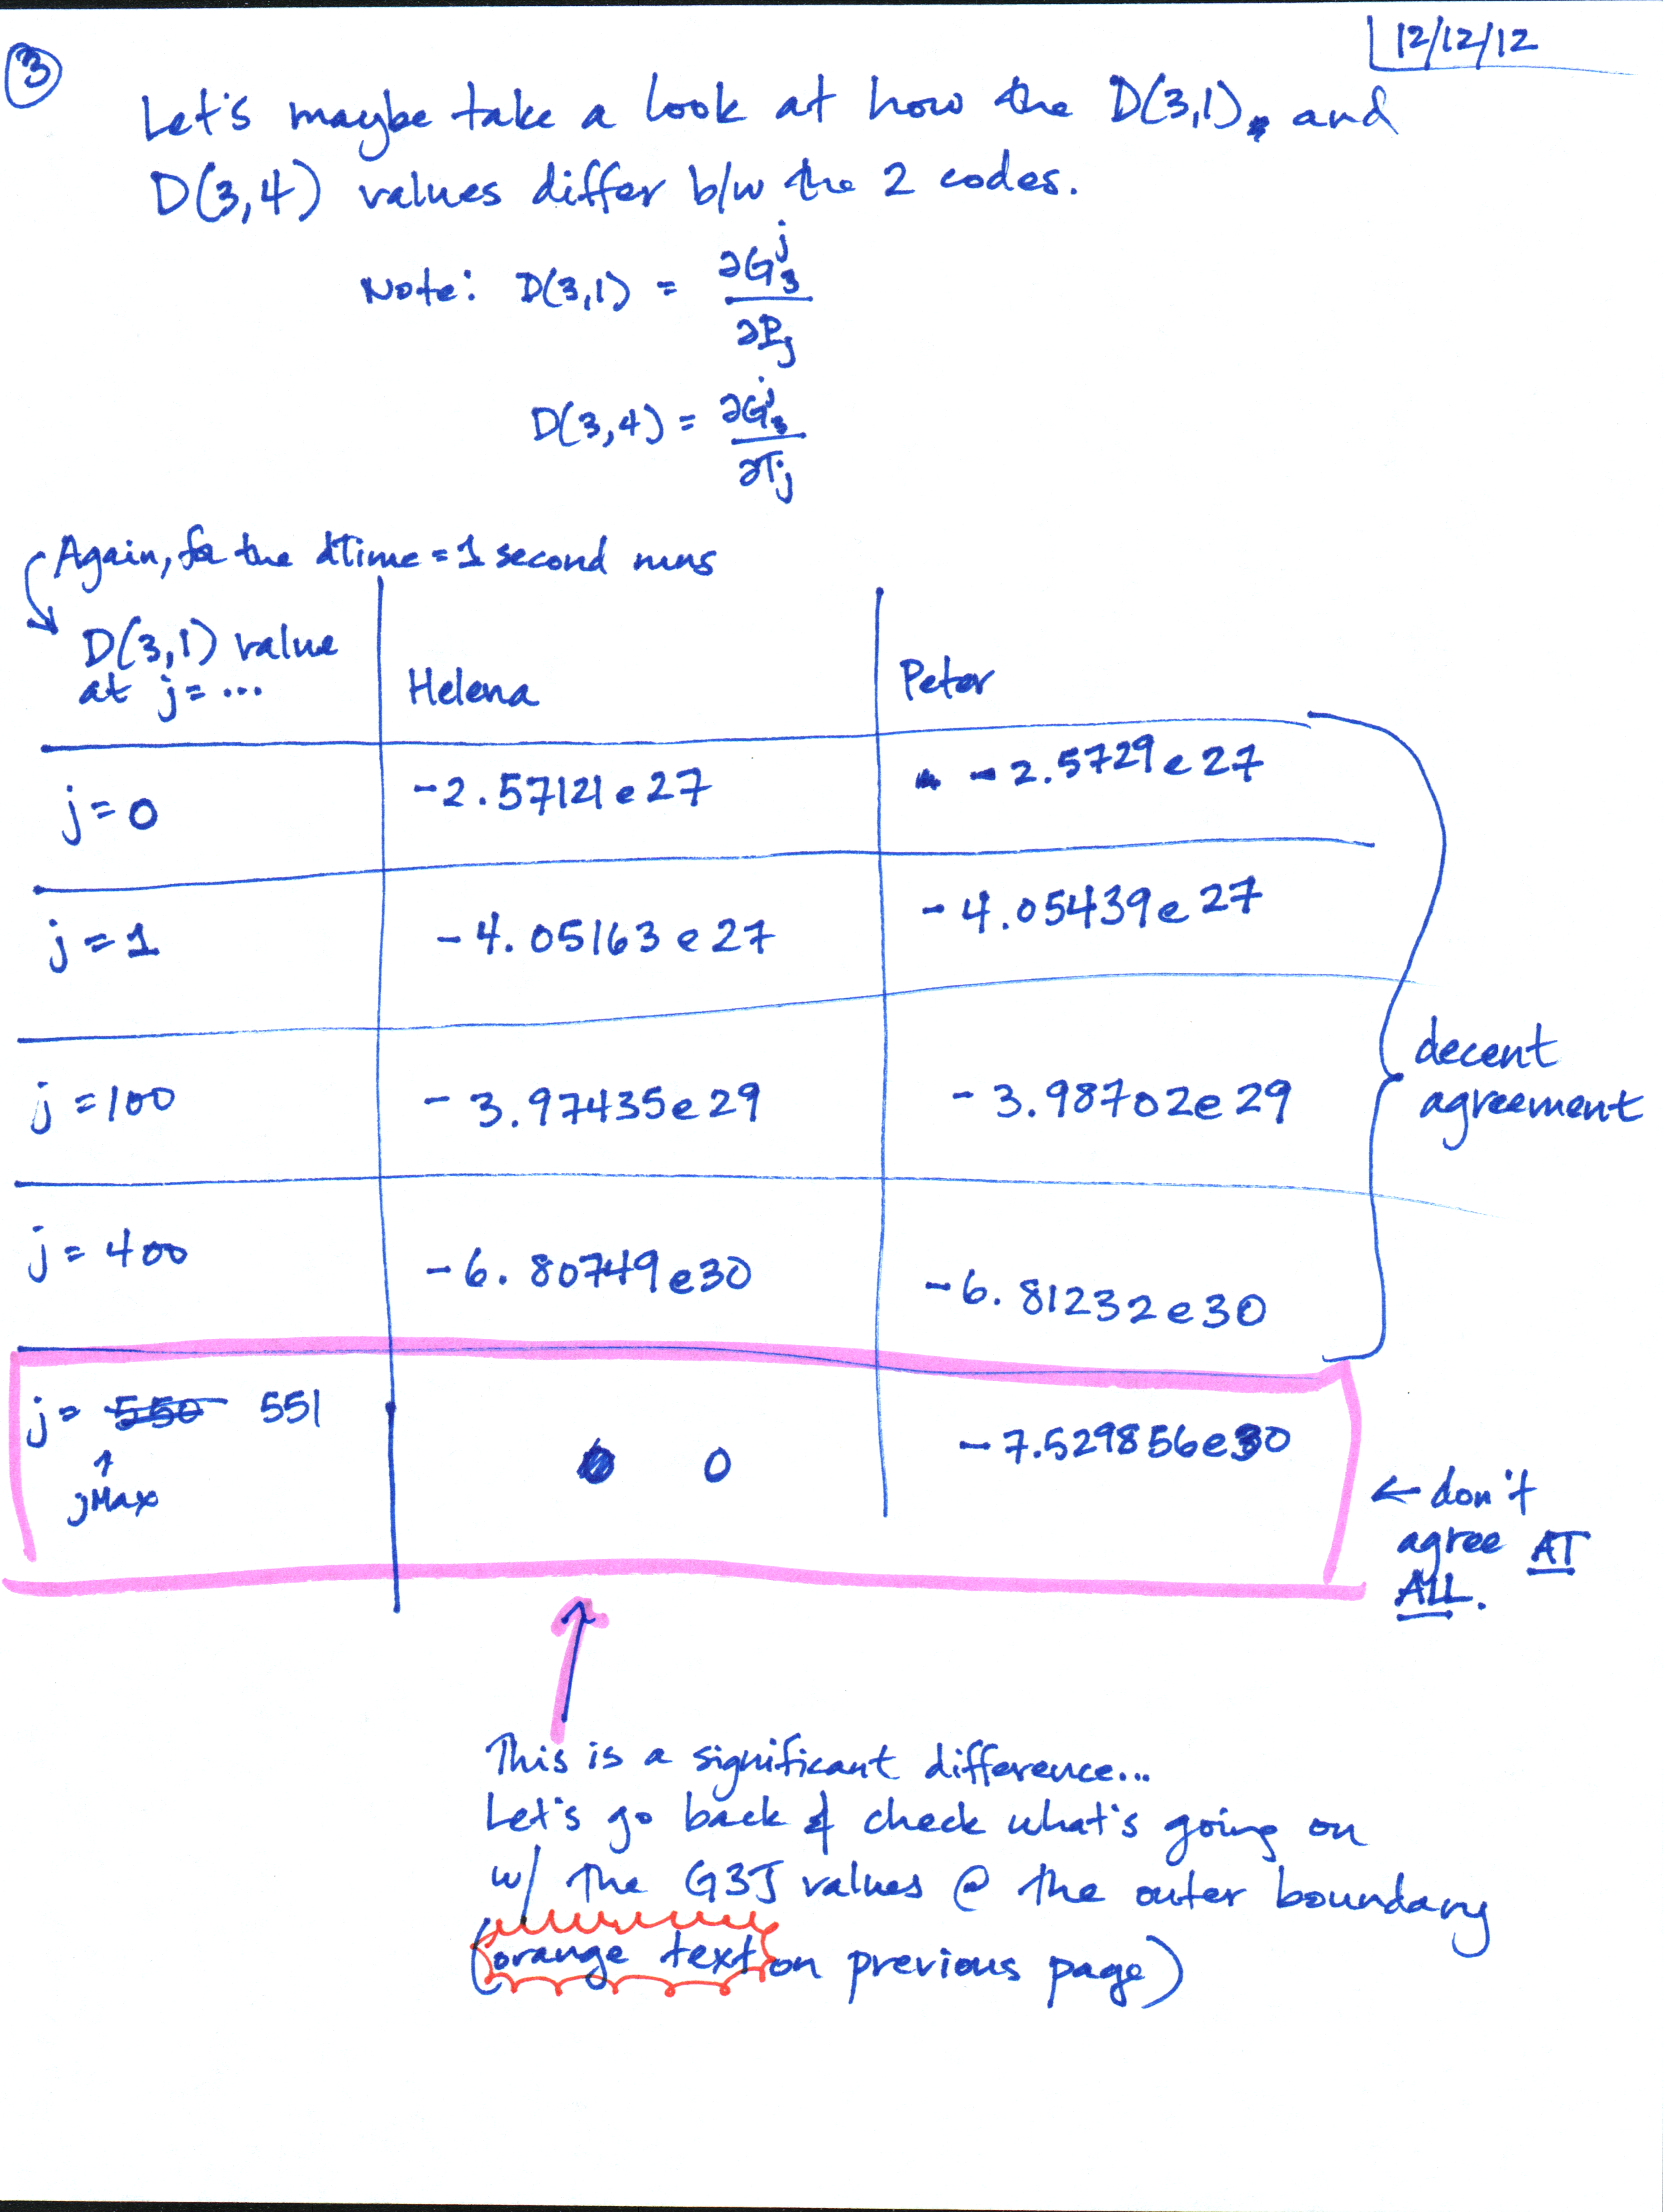 ③
12/12/12
Let's maybe take a look at how the D(3,1), and
D(3,4) values differ b/w the 2 codes.
Note: D(3,1) = ∂G₃ʲ / ∂Pⱼ
D(3,4) = ∂G₃ʲ / ∂Tⱼ
Again, for the dTime = 1 second runs
D(3,1) value
at j = ...
Helena
Peter
j = 0 -2.57121e27 -2.5729e27
j = 1 -4.05163e27 -4.05439e27
j = 100 -3.97435e29 -3.98702e29
j = 400 -6.80749e30 -6.81232e30
decent
agreement
j = 550 551 0 -7.529856e30
↑
jMax
← don't
agree AT
ALL.
This is a significant difference...
Let's go back & check what's going on
w/ the G3J values @ the outer boundary
(orange text on previous page)